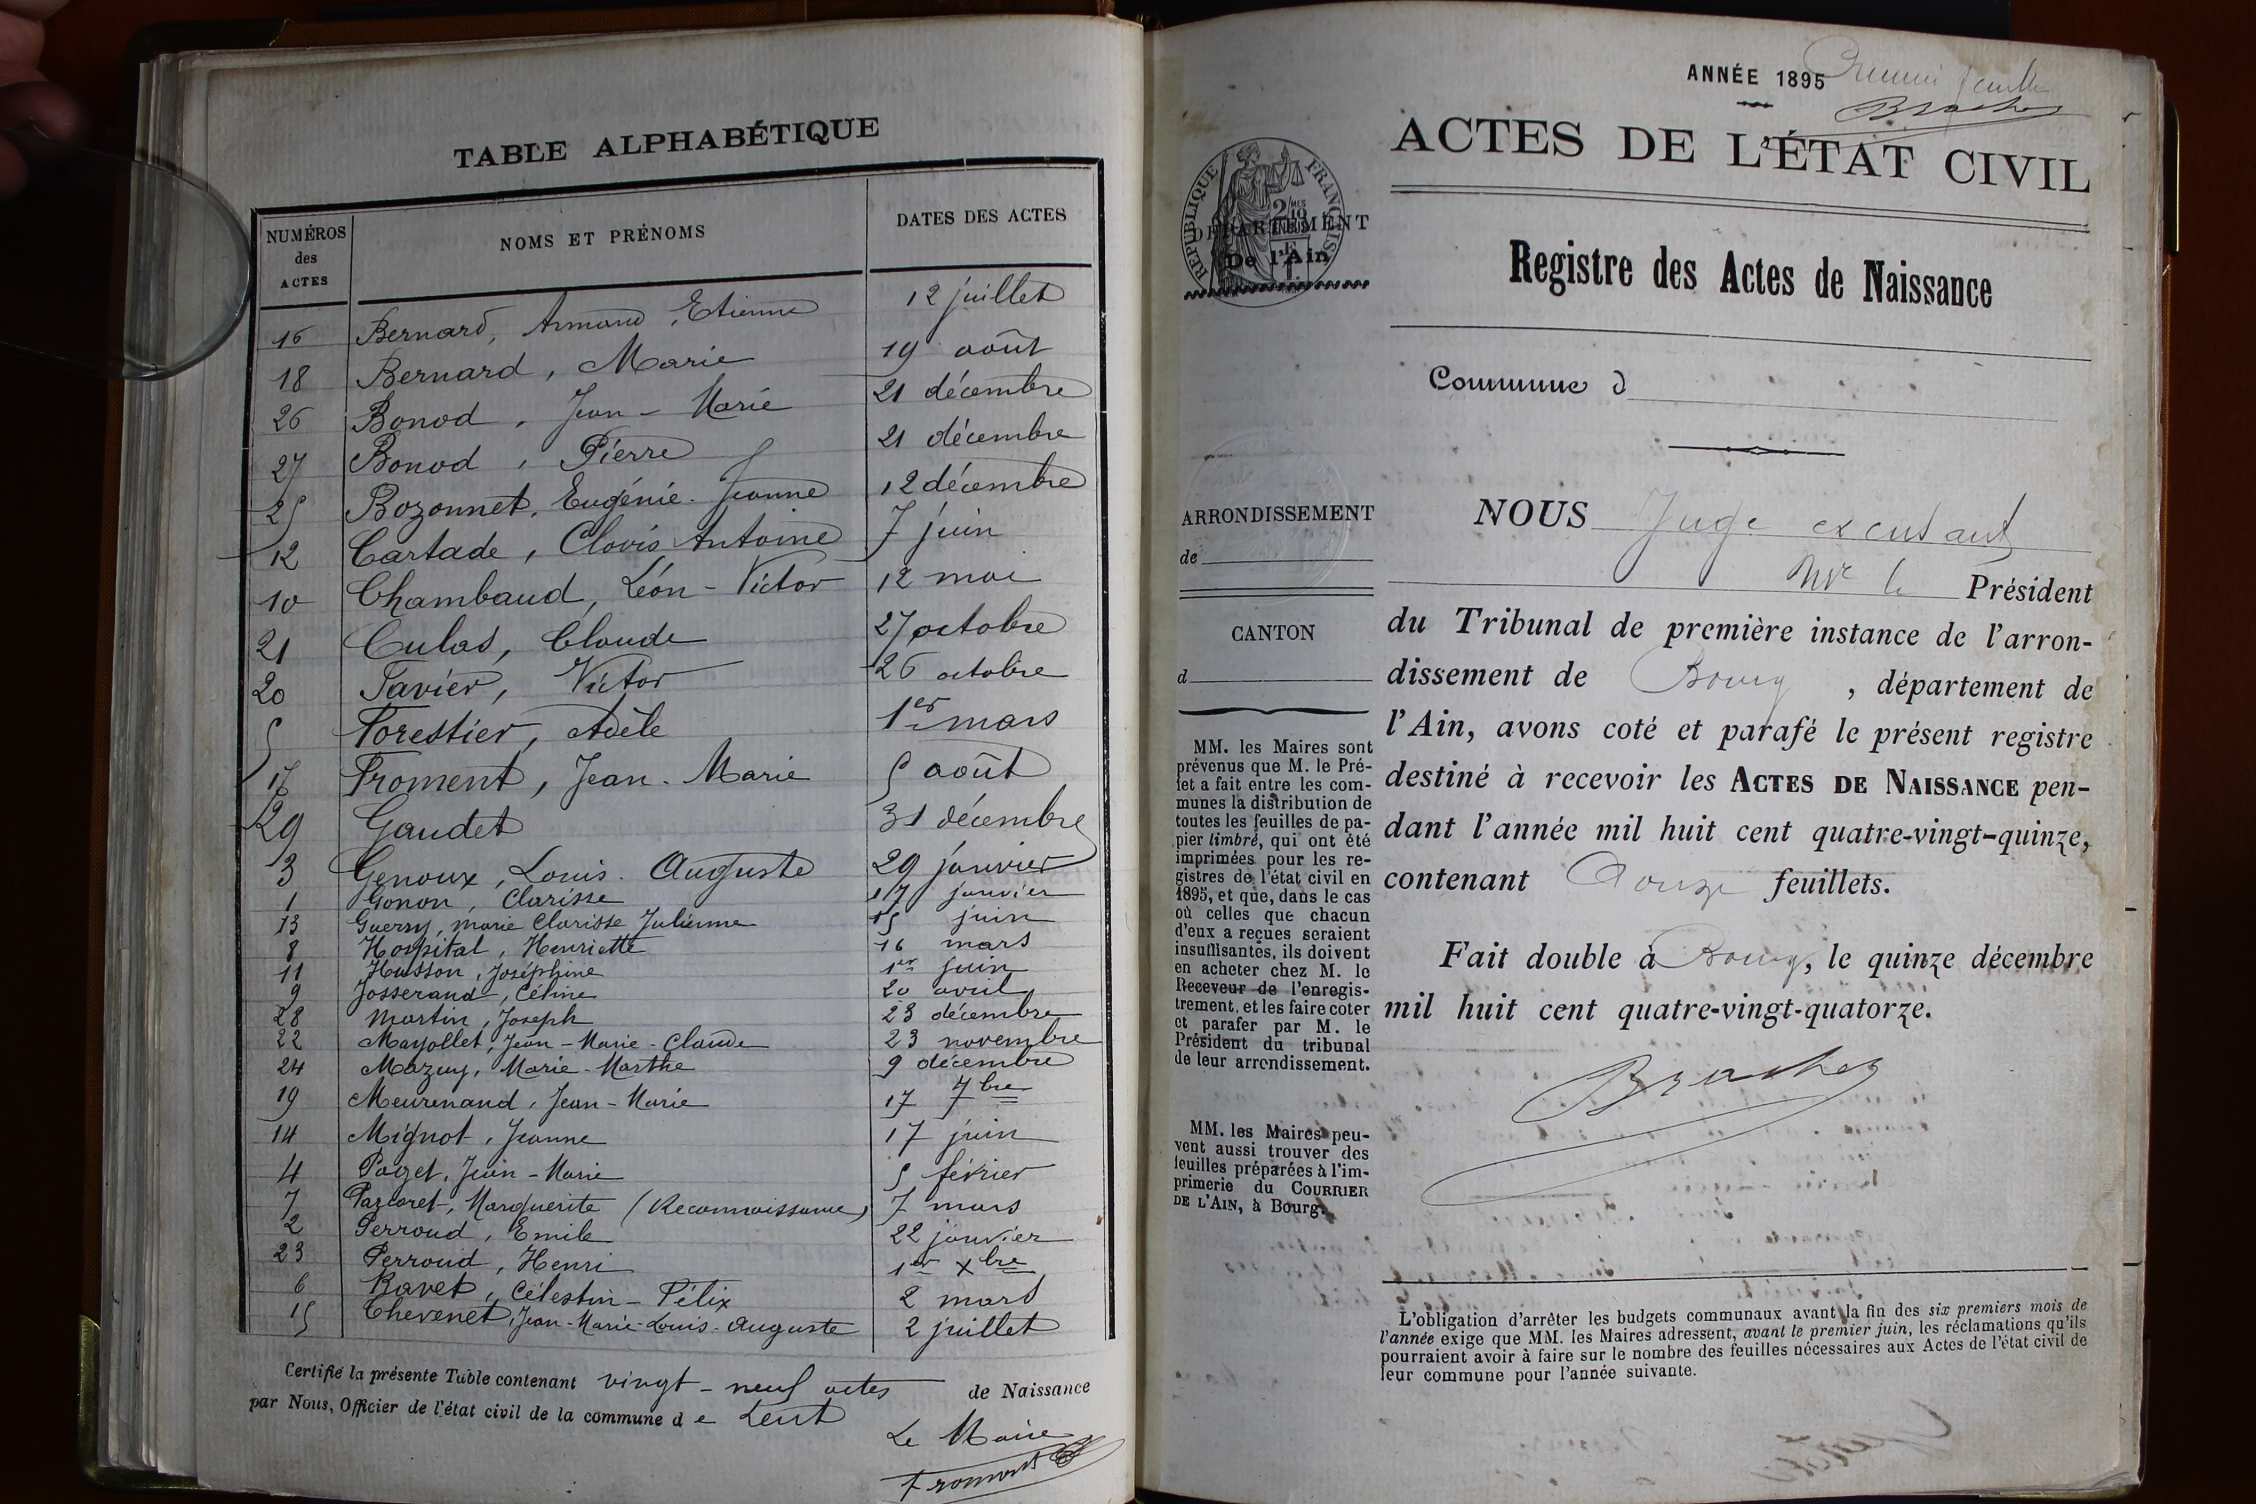 TABLE ALPHABÉTIQUE
NUMÉROS des ACTES | NOMS ET PRÉNOMS | DATES DES ACTES
16 Bernard, Armand, Etienne 12 juillet
18 Bernard, Marie 19 août
26 Bonod, Jean-Marie 21 décembre
27 Bonod, Pierre 21 décembre
25 Bozonnet, Eugénie-Jeanne 12 décembre
12 Cartade, Clovis Antoine 7 juin
10 Chambaud, Léon-Victor 12 mai
21 Culas, Claude 27 octobre
20 Favier, Victor 26 octobre
5 Forestier, Adèle 1er mars
17 Froment, Jean-Marie 5 août
29 Gaudet 31 décembre
3 Genoux, Louis-Auguste 29 janvier
1 Gonon, Clarisse 17 janvier
13 Guerry, Marie Clarisse Julienne 15 juin
8 Hospital, Henriette 16 mars
11 Husson, Joséphine 1er juin
9 Josserand, Céline 20 avril
28 Martin, Joseph 23 décembre
22 Mayollet, Jean-Marie-Claude 23 novembre
24 Mazuy, Marie-Marthe 9 décembre
19 Meurenand, Jean-Marie 17 7bre
14 Mignot, Jeanne 17 juin
4 Paget, Jean-Marie 5 février
7 Marguerite (Reconnaissance) 7 mars
2 Perroud, Emile 22 janvier
23 Perroud, Henri 1er Xbre
6 Ravet, Célestin-Félix 2 mars
15 Thevenet, Jean-Marie-Louis-Auguste 2 juillet
Certifié la présente Table contenant vingt-neuf actes de Naissance
par Nous, Officier de l'état civil de la commune de Lent
Le Maire
Froment
ANNÉE 1895
ACTES DE L'ÉTAT CIVIL
RÉPUBLIQUE FRANÇAISE
DÉPARTEMENT
De l'Ain
Registre des Actes de Naissance
Commune d
ARRONDISSEMENT
de
CANTON
d
MM. les Maires sont
prévenus que M. le Pré-
fet a fait entre les com-
munes la distribution de
toutes les feuilles de pa-
pier timbré, qui ont été
imprimées pour les re-
gistres de l'état civil en
1895, et que, dans le cas
où celles que chacun
d'eux a reçues seraient
insuffisantes, ils doivent
en acheter chez M. le
Receveur de l'enregis-
trement, et les faire coter
et parafer par M. le
Président du tribunal
de leur arrondissement.
MM. les Maires peu-
vent aussi trouver des
feuilles préparées à l'im-
primerie du COURRIER
DE L'AIN, à Bourg.
NOUS Juge
Mr le Président
du Tribunal de première instance de l'arron-
dissement de Bourg, département de
l'Ain, avons coté et parafé le présent registre
destiné à recevoir les ACTES DE NAISSANCE pen-
dant l'année mil huit cent quatre-vingt-quinze,
contenant douze feuillets.
Fait double à Bourg, le quinze décembre
mil huit cent quatre-vingt-quatorze.
L'obligation d'arrêter les budgets communaux avant la fin des six premiers mois de
l'année exige que MM. les Maires adressent, avant le premier juin, les réclamations qu'ils
pourraient avoir à faire sur le nombre des feuilles nécessaires aux Actes de l'état civil de
leur commune pour l'année suivante.